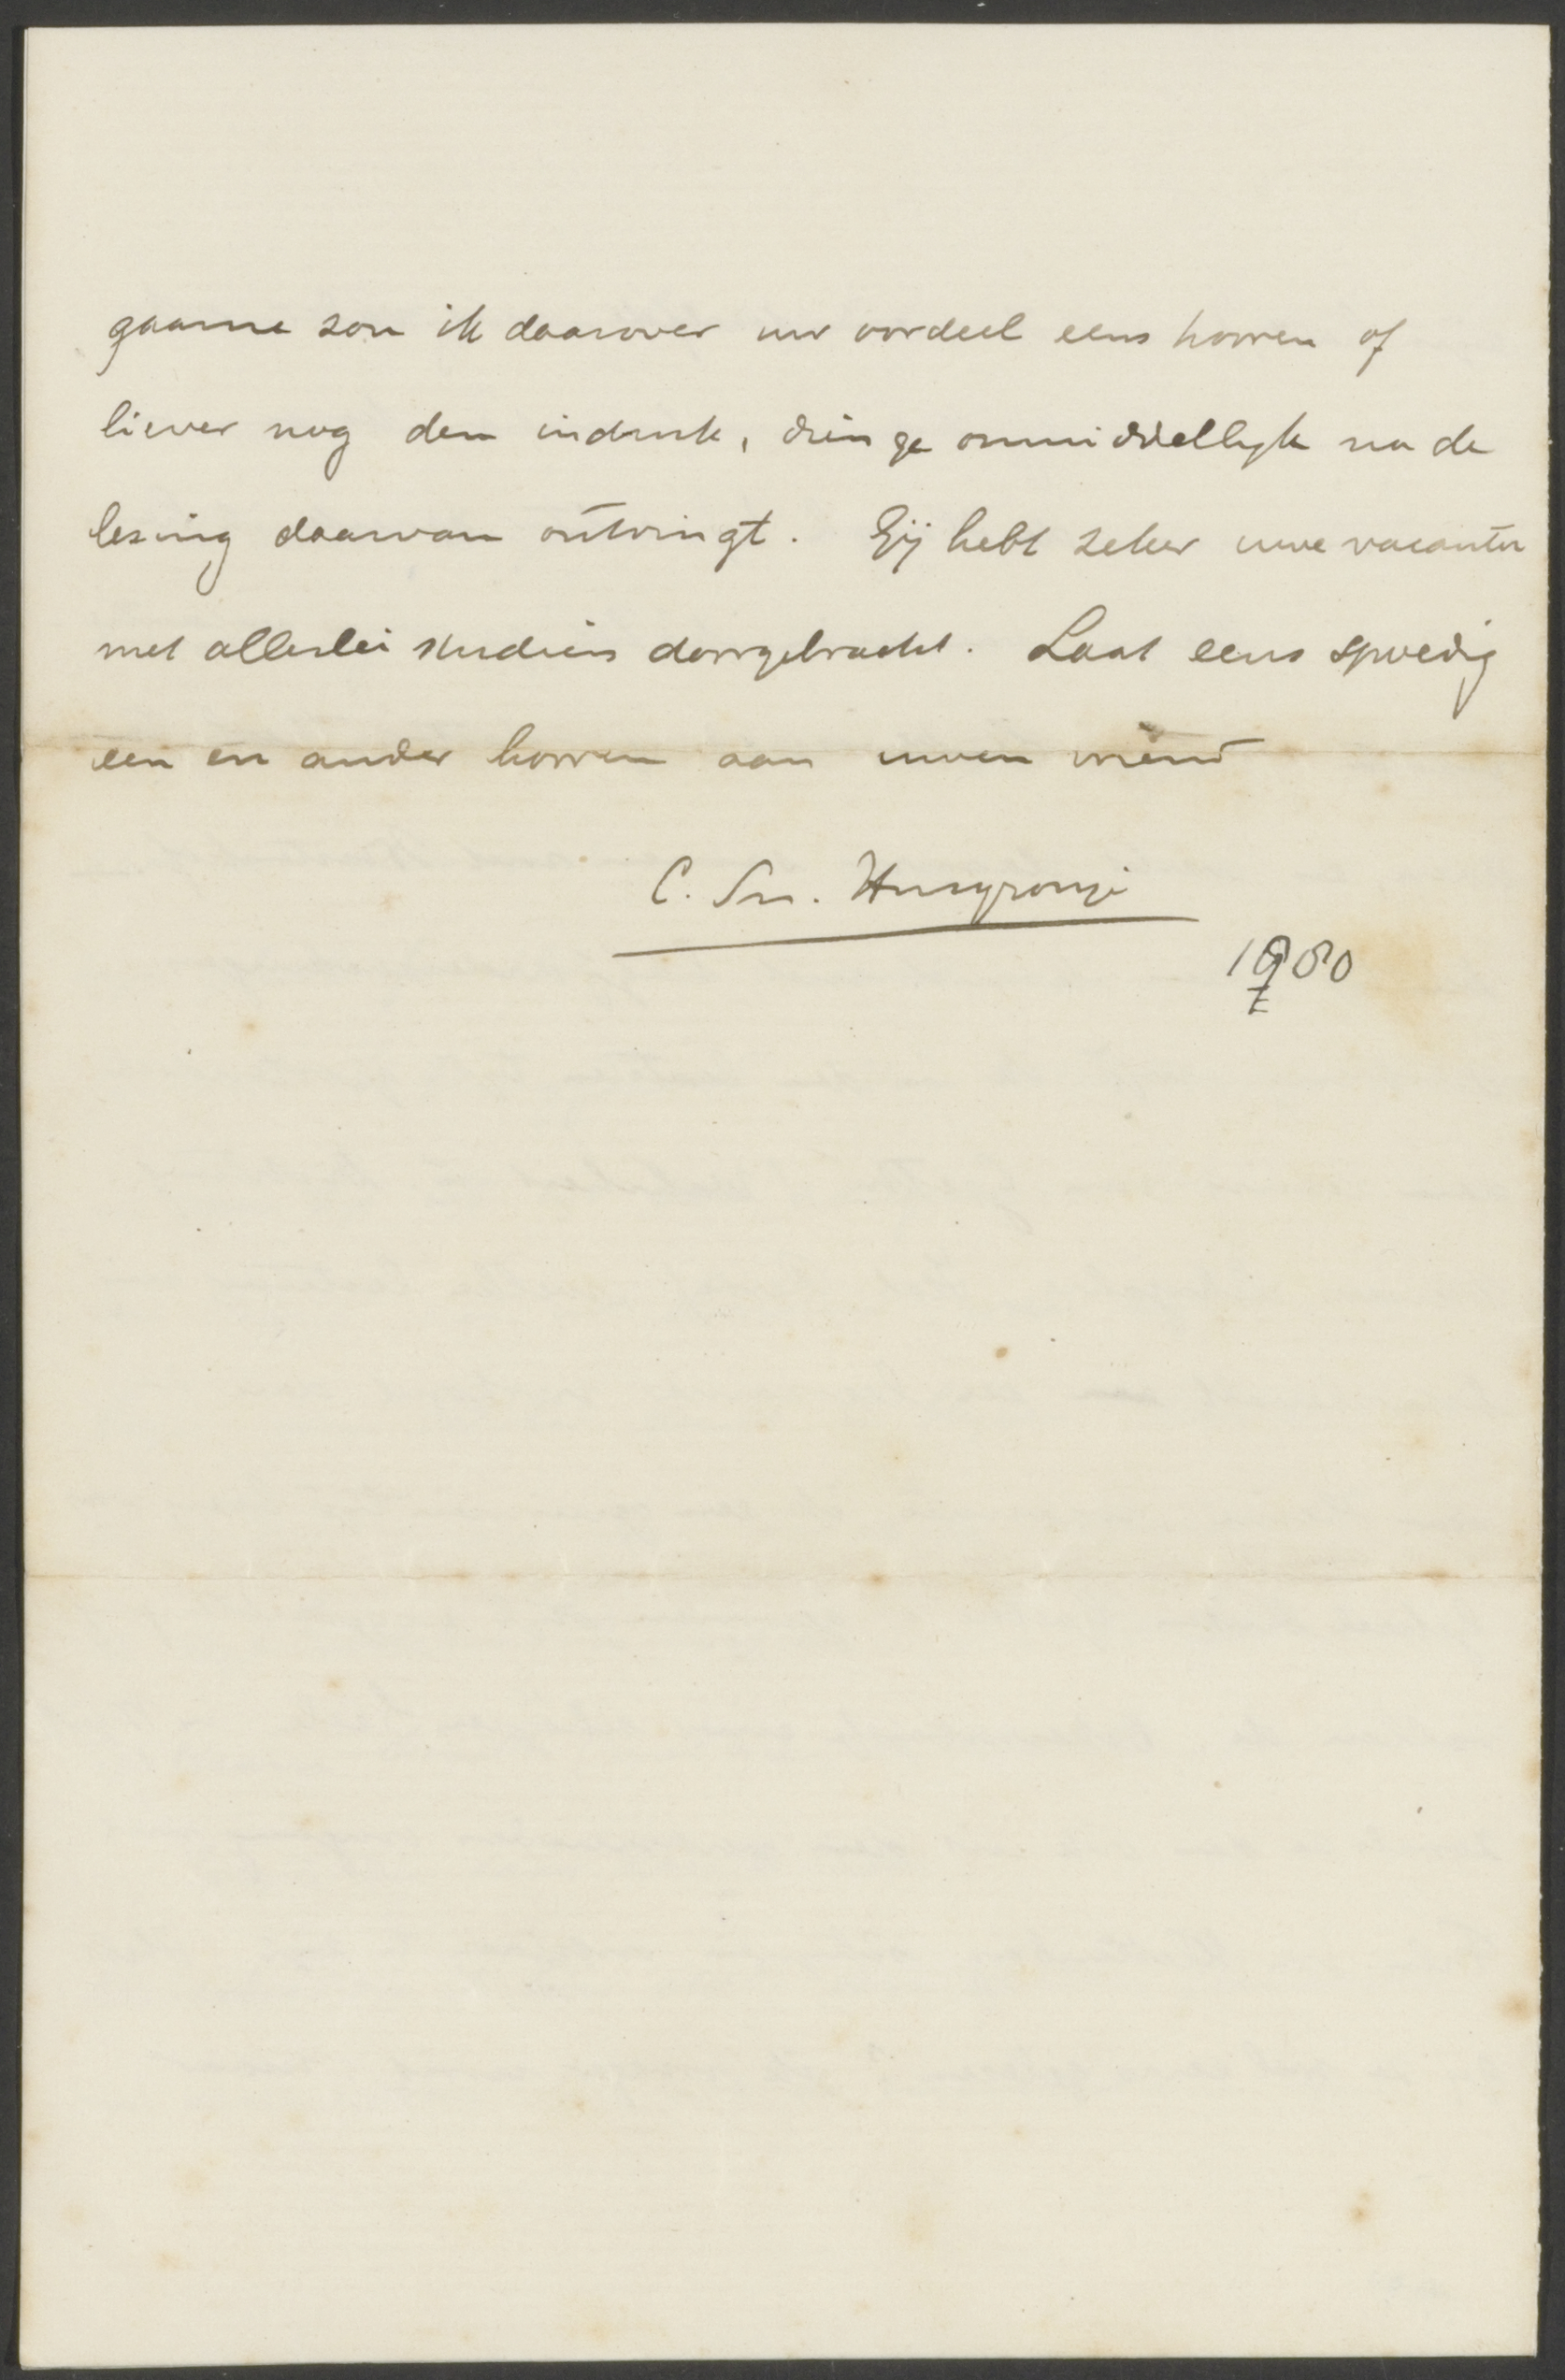 gaarne zou ik daarover uw oordeel eens hooren of
liever nog den indruk, dien ge onmiddellijk na de
lezing daarvan ontvingt. Gij hebt zeker uwe vacantie
met allerlei studiën doorgebracht. Laat eens spoedig
een en ander hooren aan uwen vriend
C. Sn. Hurgronje
1880